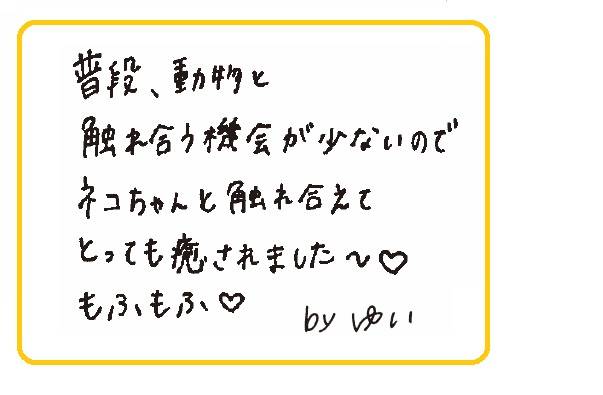 普段、動物と
触れ合う機会が少ないので
ネコちゃんと触れ合えて
とっても癒されました〜♡
もふもふ♡
by ゆい